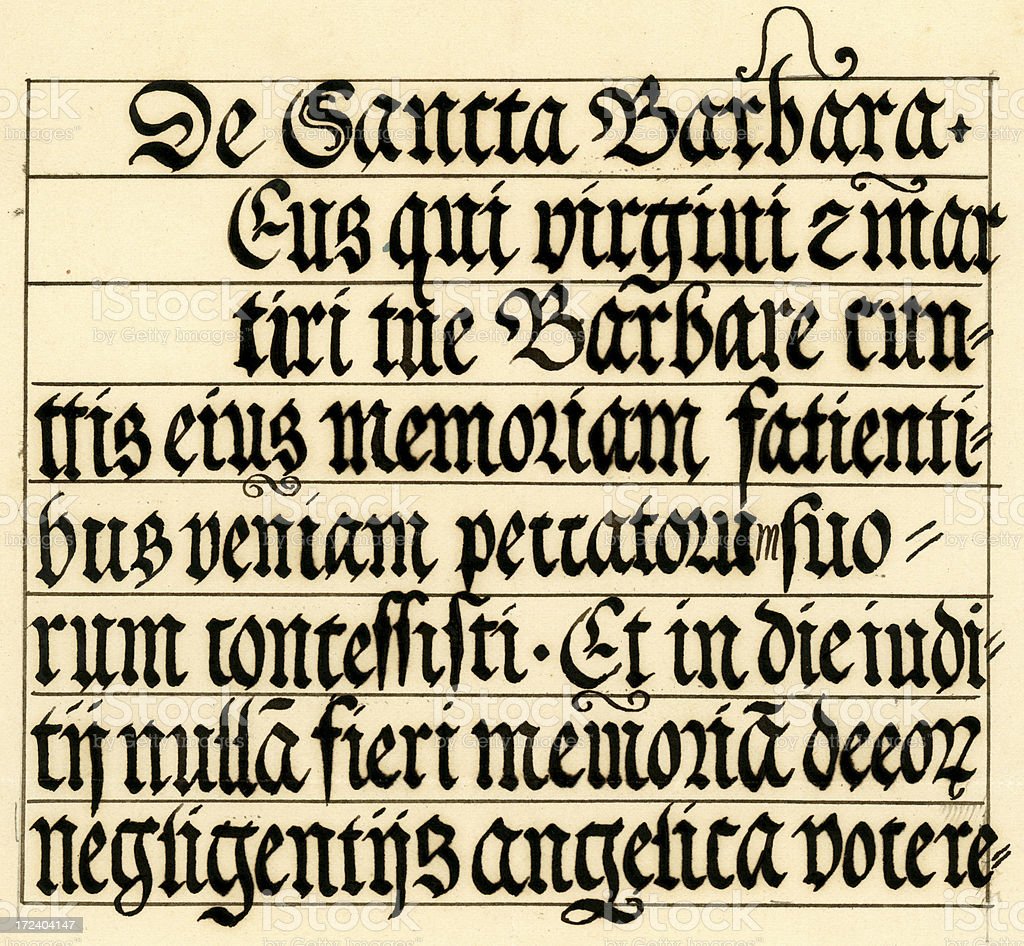 De Sancta Barbara.
Eus qui virgini ⁊ mar
tiri tue Barbare cun=
ctis eius memoriam facienti=
bus veniam peccatorum suo=
rum concessisti. Et in die iudi=
cij nullā fieri memoriā de eoꝝ
negligentijs angelica voce re=
iStock
by Getty Images™
172404147